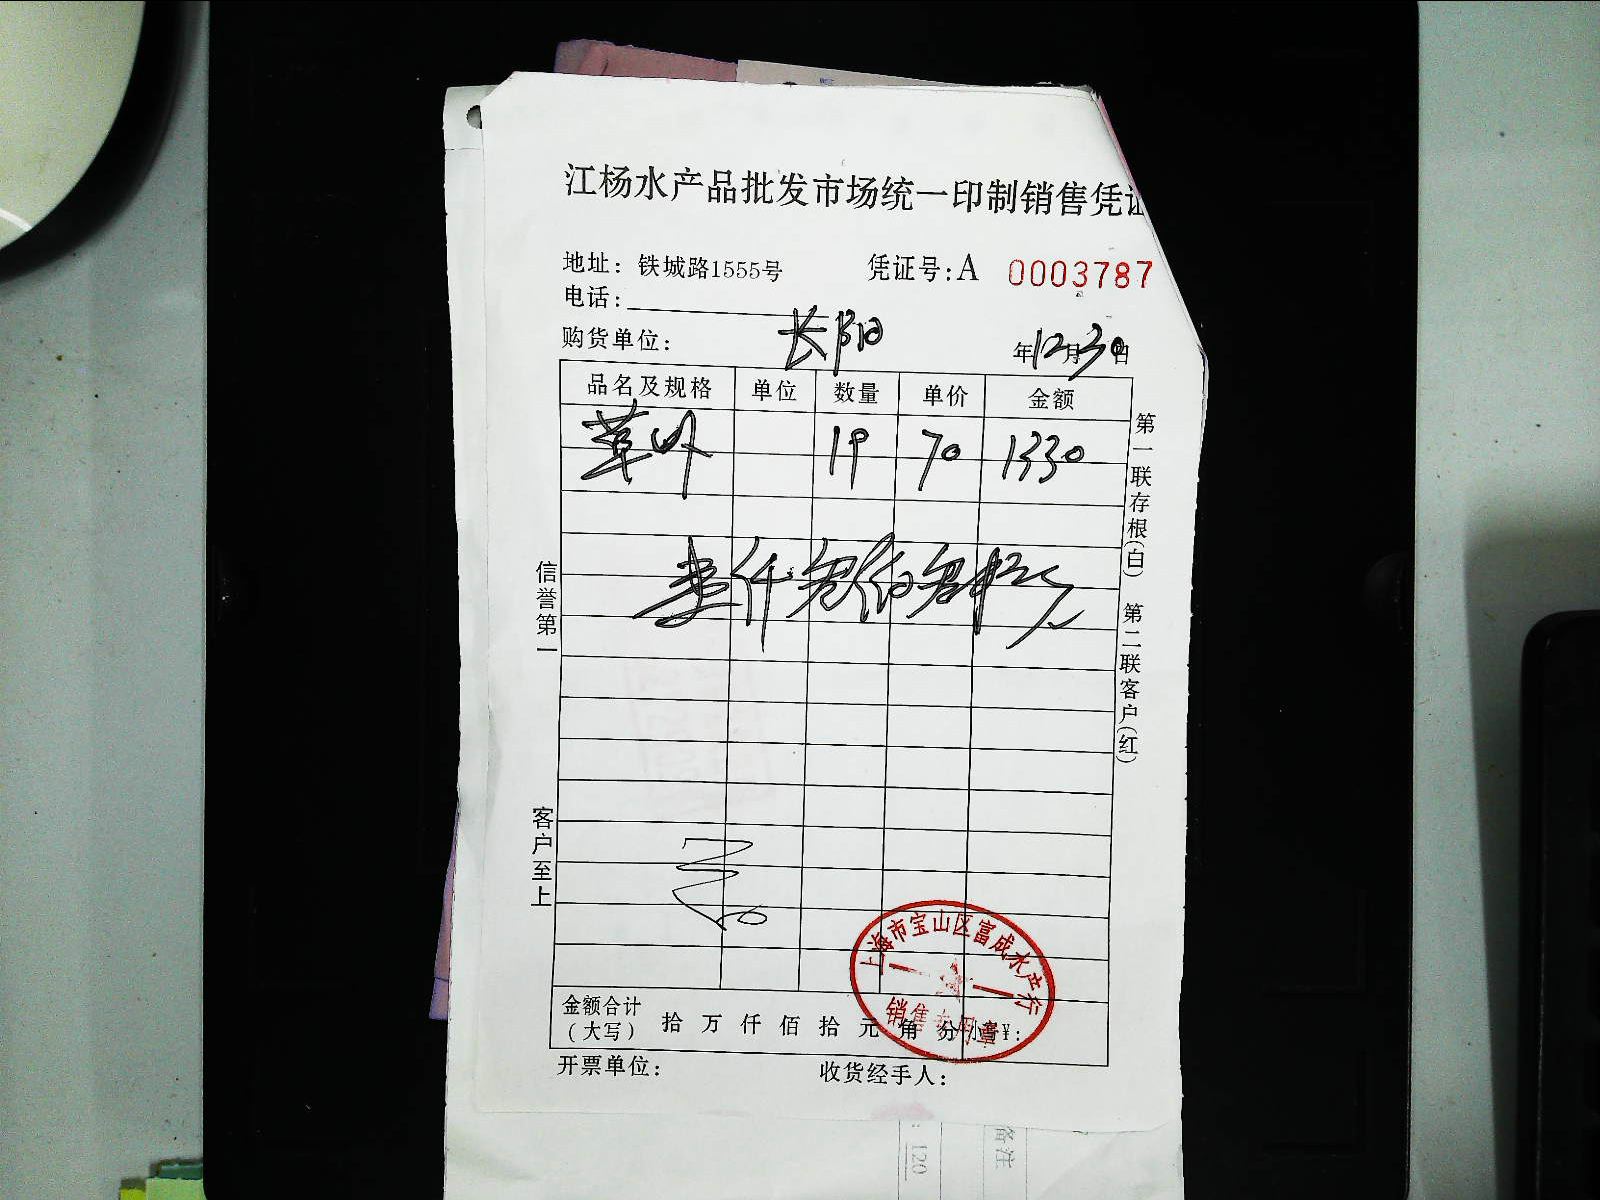 江杨水产品批发市场统一印制销售凭证
地址：铁城路1555号 凭证号：A 0003787
电话：
购货单位： 长阳 年12月30日
品名及规格 单位 数量 单价 金额
草虾 19 70 1330
壹仟叁佰叁拾元
第一联存根(白) 第二联客户(红)
信誉第一
客户至上
上海市宝山区富成水产行
销售专用章
金额合计(大写) 拾 万 仟 佰 拾 元 角 分 小写¥：
开票单位： 收货经手人：
备注
120